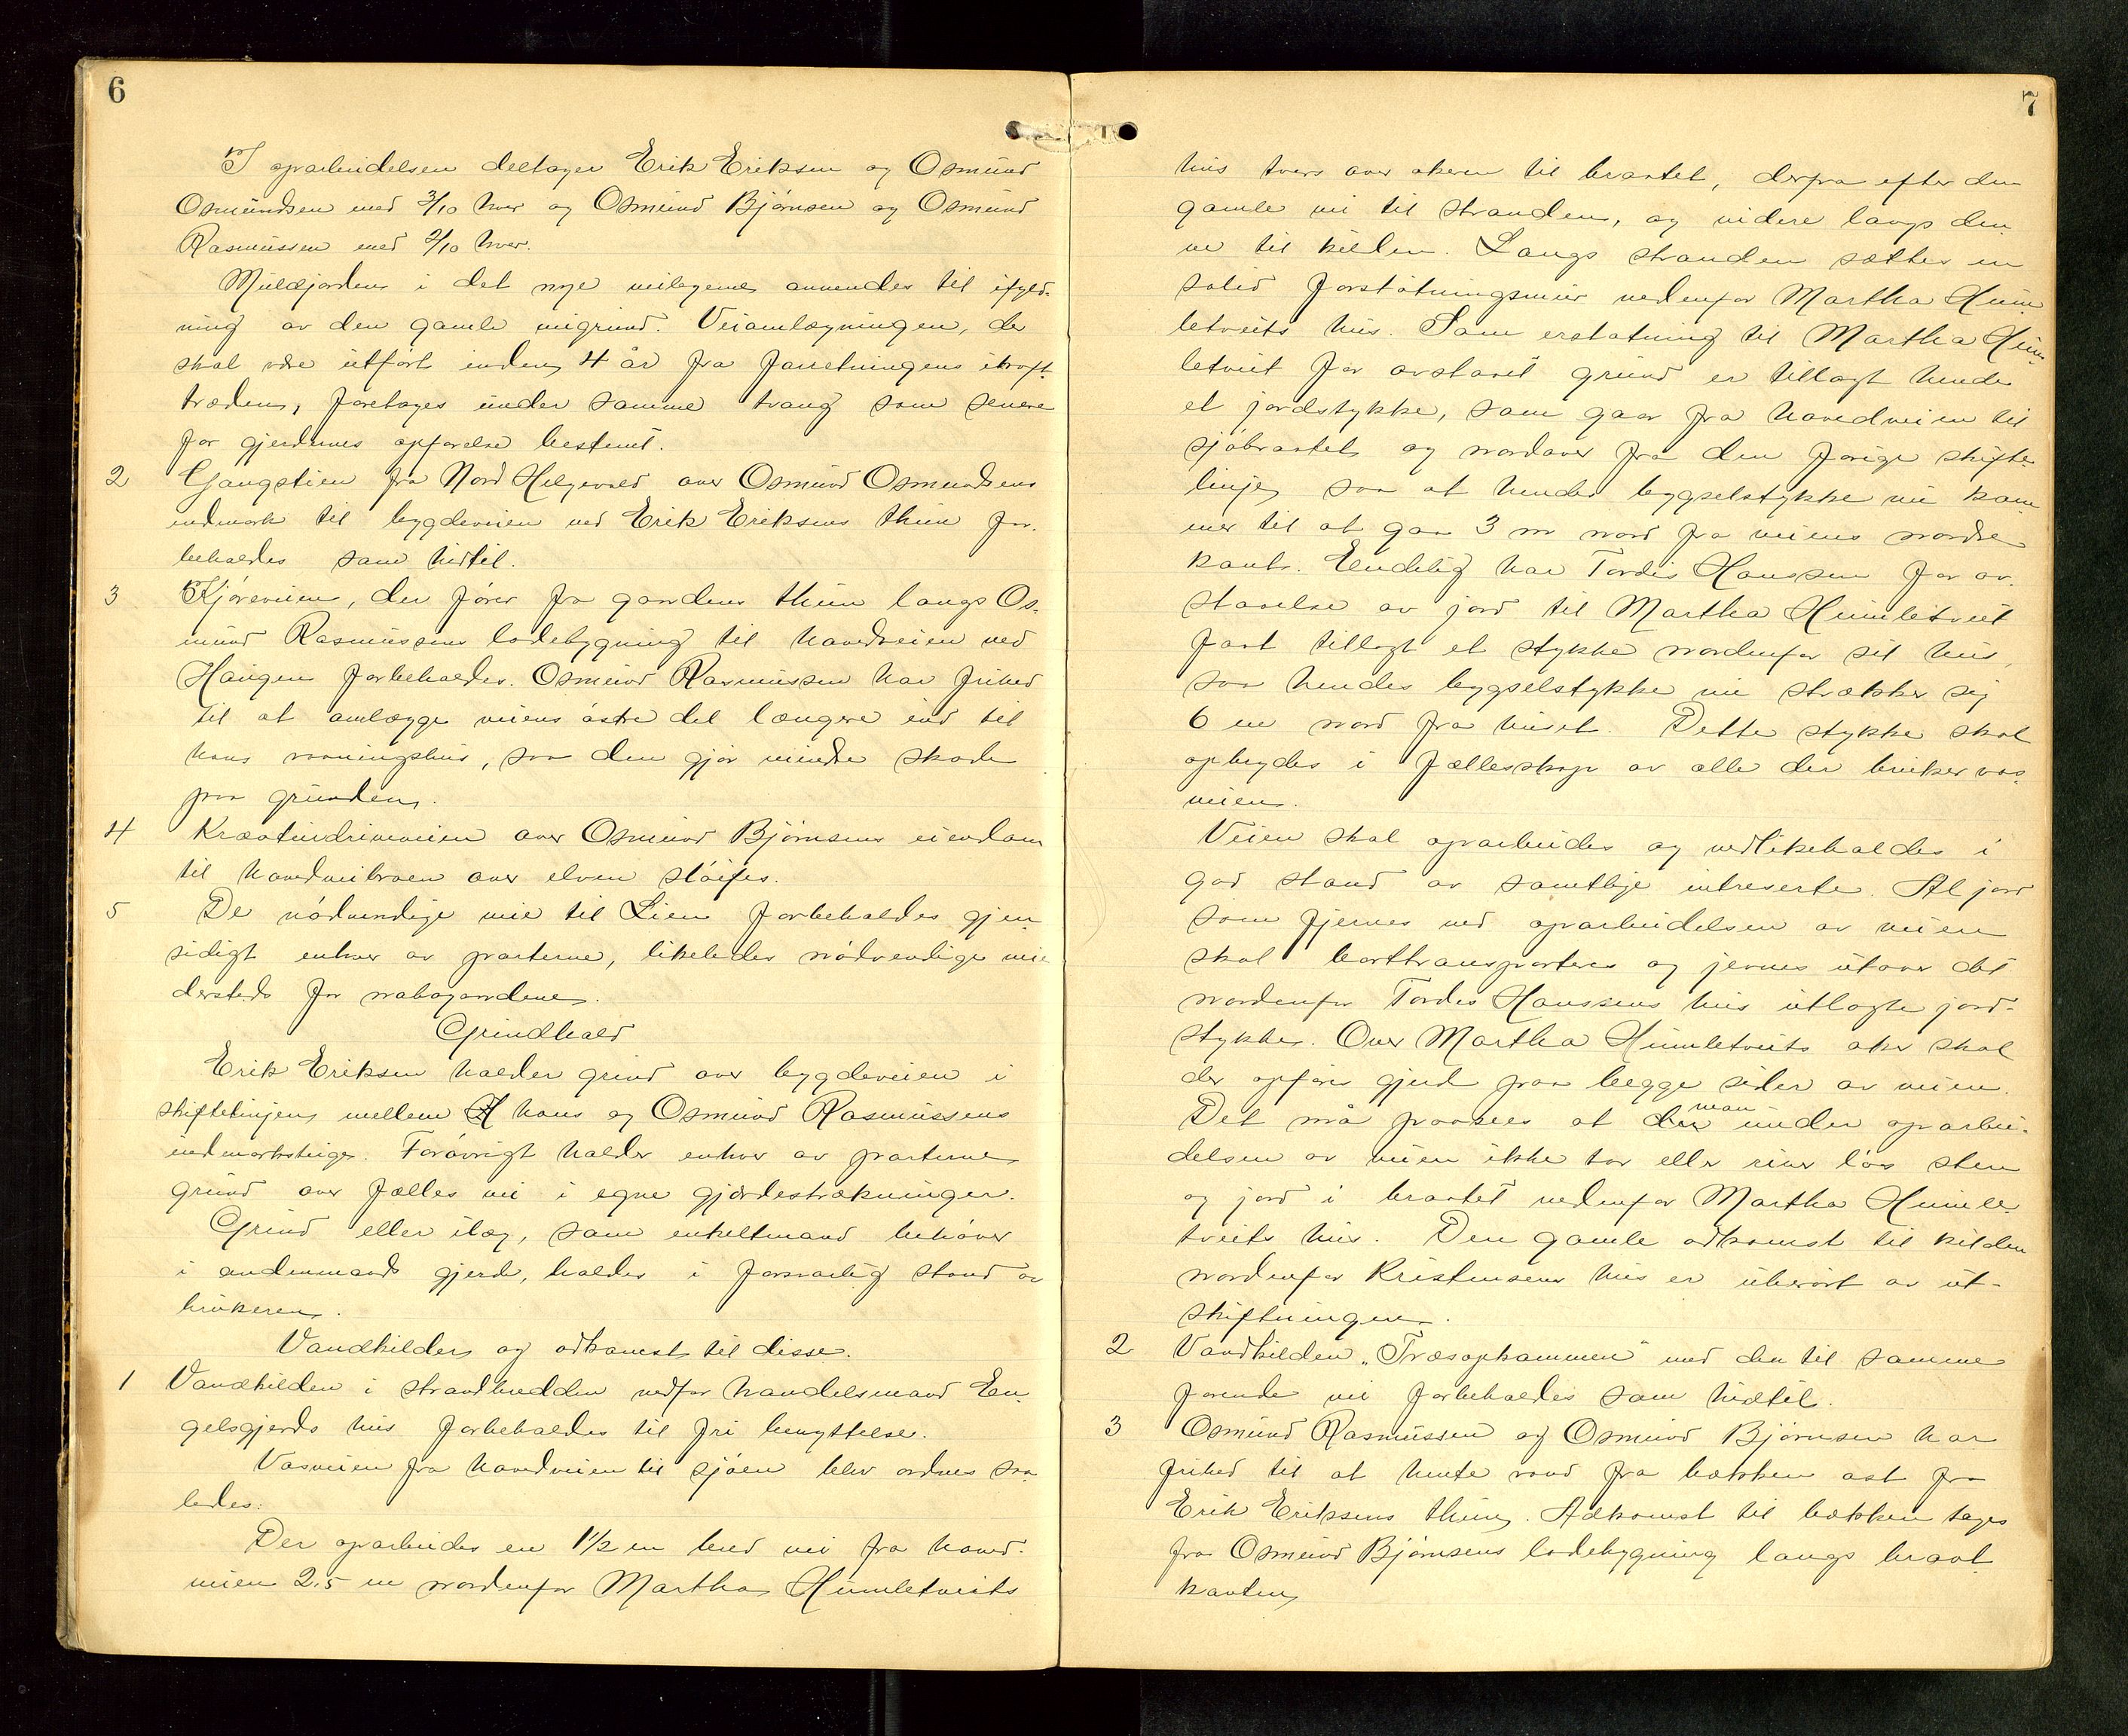 6
I oparbeidelsen deltager Erik Eriksen og Osmund
Osmundsen med 3/10 hver og Osmund Bjørnsen og Osmund
Rasmussen med 2/10 hver.
Muldjorden i det nye veilegeme anvendes til ifyld-
ning av den gamle veigrund. Veianlægningen, der
skal være utført inden 4 år fra forretningens ikraft-
træden, foretages under samme tvang som senere
for gjerdernes opførelse bestemt.
2 Gangstien fra Nord Helgevold over Osmund Osmundsens
indmark til bygdeveien ved Erik Eriksens thun for-
beholdes som hidtil.
3 Kjøreveien, der fører fra gaardens thun langs Os-
mund Rasmussens ladebygning til hovedveien ved
Haugen forbeholdes. Osmund Rasmussen har frihed
til at anlægge veiens østre del længere ind til
hans vaaningshus, saa den gjør mindre skade
paa grunden.
4 Kreaturdriveveien over Osmund Bjørnsens eiendom
til hovedveibroen over elven sløifes.
5 De nødvendige veie til Lien forbeholdes gjen-
sidigt enhver av parterne, likeledes nødvendige veie
dersteds for nabogaardene.
Grindhald
Erik Eriksen holder grind over bygdeveien i
skiftelinjen mellem hans og Osmund Rasmussens
indmarksteiger. Forøvrigt holder enhver av parterne
grind over fælles vei i egne gjærdestrækninger.
Grind eller ilæg, som enkeltmand behøver
i andenmands gjerde, holdes i forsvarlig stand av
brukeren.
Vandkilder og adkomst til disse.
1 Vandkilden i strandbredden nedfor handelsmand En-
gelsgjerds hus forbeholdes til fri benyttelse.
Vasveien fra hovedveien til sjøen blev ordnet saa-
ledes:
Der oparbeides en 1 1/2 m bred vei fra hoved-
veien 2,5 m nordenfor Martha Humletveits
7
hus tvers over akeren til braatet, derfra efter den
gamle vei til stranden, og videre langs den-
ne til kilden. Langs stranden sættes en
solid forstøtningsmur nedenfor Martha Hum-
letveits hus. Som erstatning til Martha Hum-
letveit for avstaat grund er tillagt hende
et jordstykke, som gaar fra hovedveien til
sjøbraatet og nordover fra den forrige skifte-
linje, saa at hendes bygselstykke nu kom-
mer til at gaa 3 m nord fra veiens nordre
kant. Endelig har Tordis Hanssen for av-
staaelse av jord til Martha Humletveit
faat tillagt et stykke nordenfor sit hus,
saa hendes bygselstykke nu strækker sig
6 m nord fra huset. Dette stykke skal
opbrydes i fællesskap av alle der bruker vas-
veien.
Veien skal oparbeides og vedlikeholdes i
god stand av samtlige intreserte. Al jord
som fjernes ved oparbeidelsen av veien
skal borttransporteres og jevnes utover det
nordenfor Tordis Hanssens hus utlagte jord-
stykke. Over Martha Humletveits aker skal
der opføres gjerde paa begge sider av veien.
Det må paasees at man under oparbei-
delsen av veien ikke tar eller river løs sten
og jord i braatet nedenfor Martha Humle-
tveits hus. Den gamle adkomst til kilden
nordenfor Kristensens hus er uberørt av ut-
skiftningen.
2 Vandkilden "Træsopkommen" med den til samme
førende vei forbeholdes som hidtil.
3 Osmund Rasmussen og Osmund Bjørnsen har
frihed til at hente vand fra bækken øst fra
Erik Eriksens thun. Adkomst til bækken tages
fra Osmund Bjørnsens ladebygning langs braat-
kanten